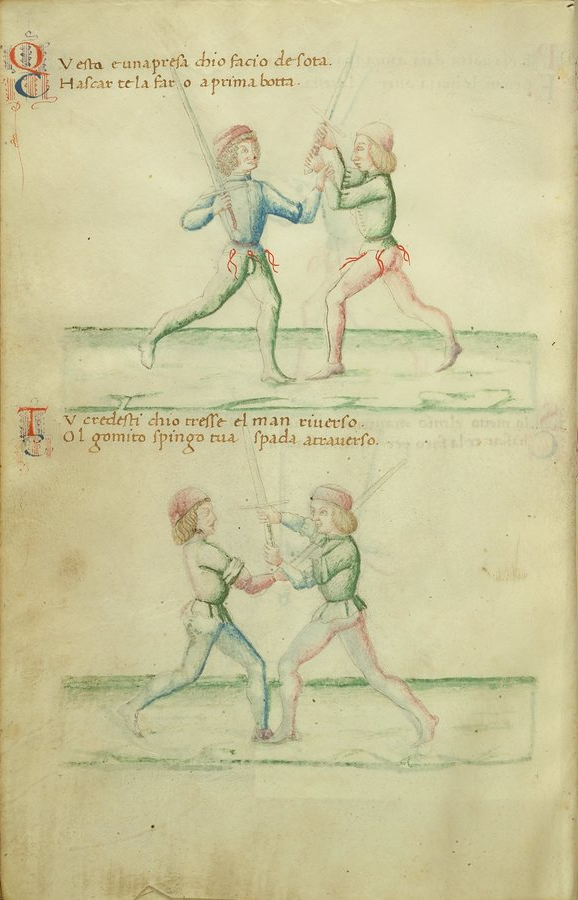 Questa e una presa chio facio de sota.
Chascar te la faro a prima botta.
Tu credesti chio tresse el man riuerso.
Ol gomito spingo tua spada atrauerso.